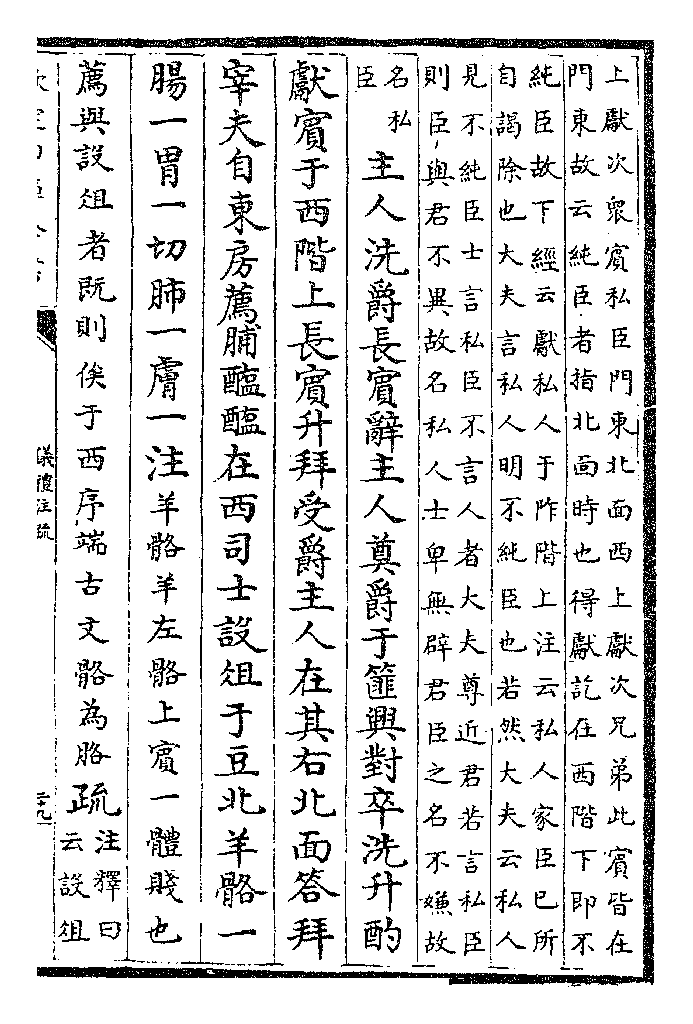 上獻次衆賓私臣門東北面西上獻次兄弟此賓皆在
門東故云純臣者指北面時也得獻訖在西階下即不
純臣故下經云獻私人于阼階上注云私人家臣已所
自謁除也大夫言私人明不純臣也若然大夫云私人
見不純臣士言私臣不言人者大夫尊近君若言私臣
則臣與君不異故名私人士卑無辟君臣之名不嫌故
名私
臣
主人洗爵長賓辭主人奠爵于篚興對卒洗升酌
獻賓于西階上長賓升拜受爵主人在其右北面答拜
宰夫自東房薦脯醢醢在西司士設俎于豆北羊骼一
腸一胃一切肺一膚一注羊骼羊左骼上賓一體賤也
薦與設俎者既則俟于西序端古文骼為胳疏注釋曰
云設俎
儀禮注疏